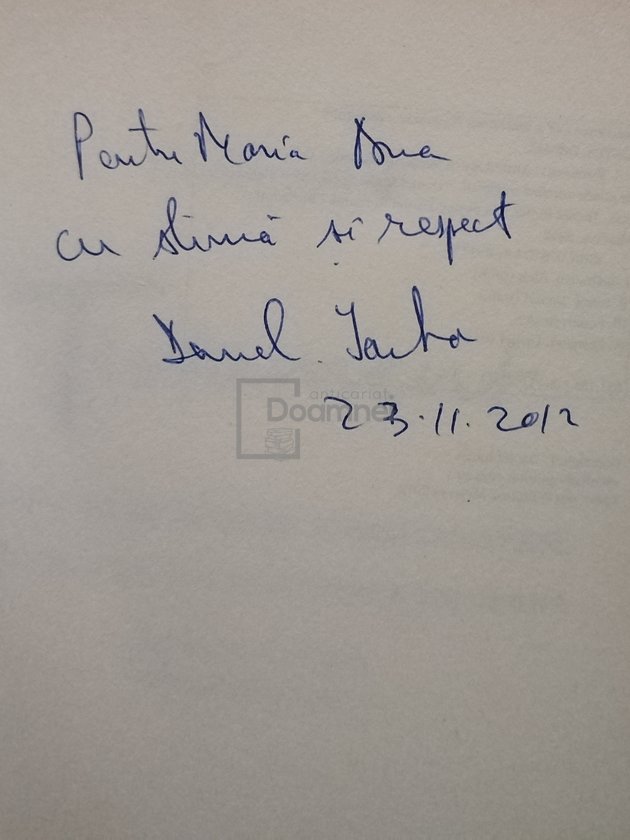 Pentru Maria
cu stimă și respect
Daniel
anticariat
Doamnei
23.11.2012